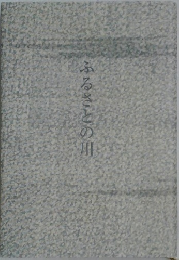 ふるさとの川